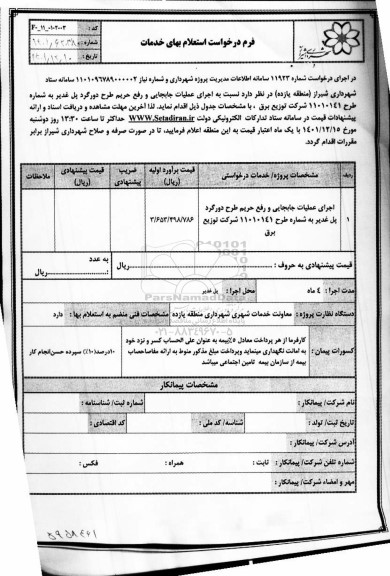 فرم درخواست استعلام بهای خدمات
کد : F۰_۱۱_۰۱-۲۰۰۳
شماره :
در اجرای درخواست شماره ۱۱۹۲۳ سامانه اطلاعات مدیریت پروژه شهرداری و شماره نیاز ۱۱۰۱۰۹۶۷۸۹۰۰۰۰۰۲ سامانه ستاد
شهرداری شیراز (منطقه یازده) در نظر دارد نسبت به اجرای عملیات جابجایی و رفع حریم طرح دورگرد پل غدیر به شماره
طرح ۱۱۰۱۰۱۴۱ شرکت توزیع برق ، با مشخصات جدول ذیل اقدام نماید. لذا آخرین مهلت مشاهده و دریافت اسناد و ارائه
پیشنهادات قیمت در سامانه ستاد تدارکات الکترونیکی دولت WWW.Setadiran.ir حداکثر تا ساعت ۱۳:۳۰ روز دوشنبه
مورخ ۱۴۰۱/۱۲/۱۵ با یک ماه اعتبار قیمت به این منطقه اعلام فرمایید، تا در صورت صرفه و صلاح شهرداری شیراز برابر
مقررات اقدام گردد.
ردیف مشخصات پروژه/ خدمات درخواستی قیمت برآورد اولیه (ریال) ضریب پیشنهادی قیمت پیشنهادی (ریال) ملاحظات
۱ اجرای عملیات جابجایی و رفع حریم طرح دورگرد
پل غدیر به شماره طرح ۱۱۰۱۰۱۴۱ شرکت توزیع
برق
۳/۶۵۳/۴۹۸/۷۸۶
قیمت پیشنهادی به حروف : ریال
به عدد : ریال
مدت اجرا : ۴ ماه محل اجرا : پل غدیر
دستگاه نظارت پروژه : معاونت خدمات شهری شهرداری منطقه یازده مشخصات فنی منضم به استعلام بها : دارد
کسورات پیمان : کارفرما از هر پرداخت معادل ۵٪ بیمه به عنوان علی الحساب کسر و نزد خود
به امانت نگهداری مینماید وپرداخت مبلغ مذکور منوط به ارائه مفاصاحساب
بیمه از سازمان بیمه تامین اجتماعی میباشد
۱۰درصد(۱۰٪) سپرده حسن انجام کار
مشخصات پیمانکار
نام شرکت/ پیمانکار : شماره ثبت/ شناسنامه :
تاریخ ثبت/ تولد : شناسه/ کد ملی : کد اقتصادی :
آدرس شرکت/ پیمانکار :
شماره تلفن شرکت/ پیمانکار : ثابت : همراه : فکس :
مهر و امضاء شرکت/ پیمانکار :
ParsNamadData
۰۲۱-۸۸۳۴۹۶۷۰-۵